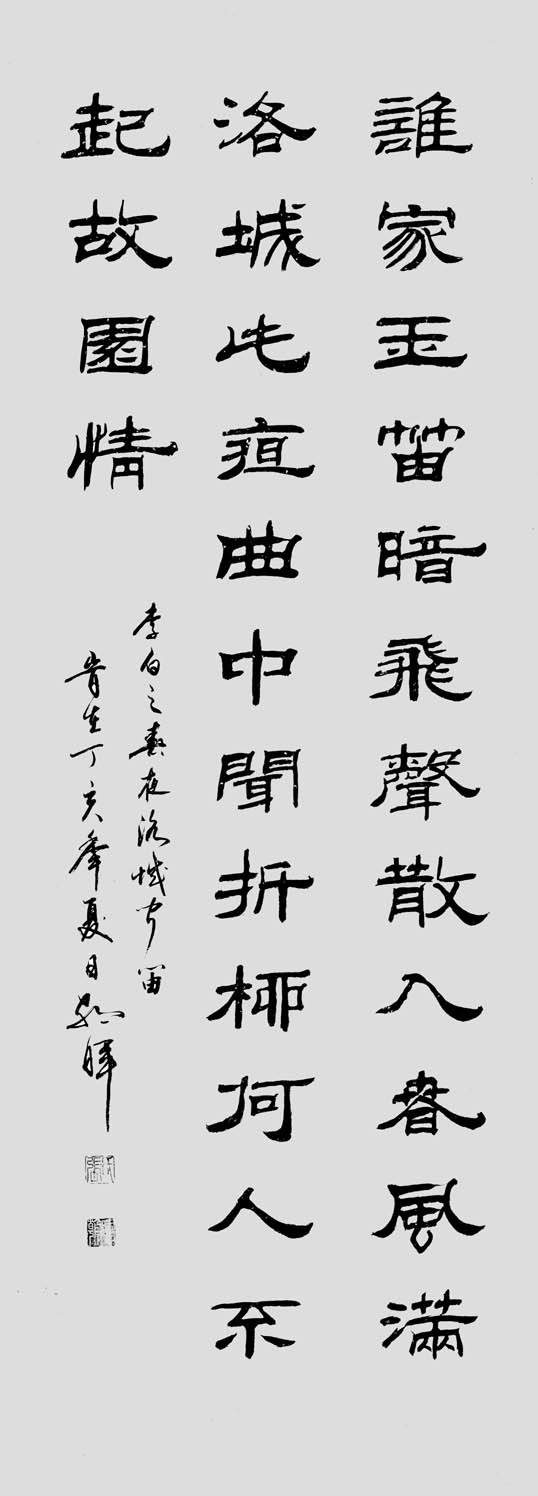 誰家玉笛暗飛聲散入春風滿
洛城此夜曲中聞折柳何人不
起故園情
李白之春夜洛城聞笛
歲在丁亥年夏日暉